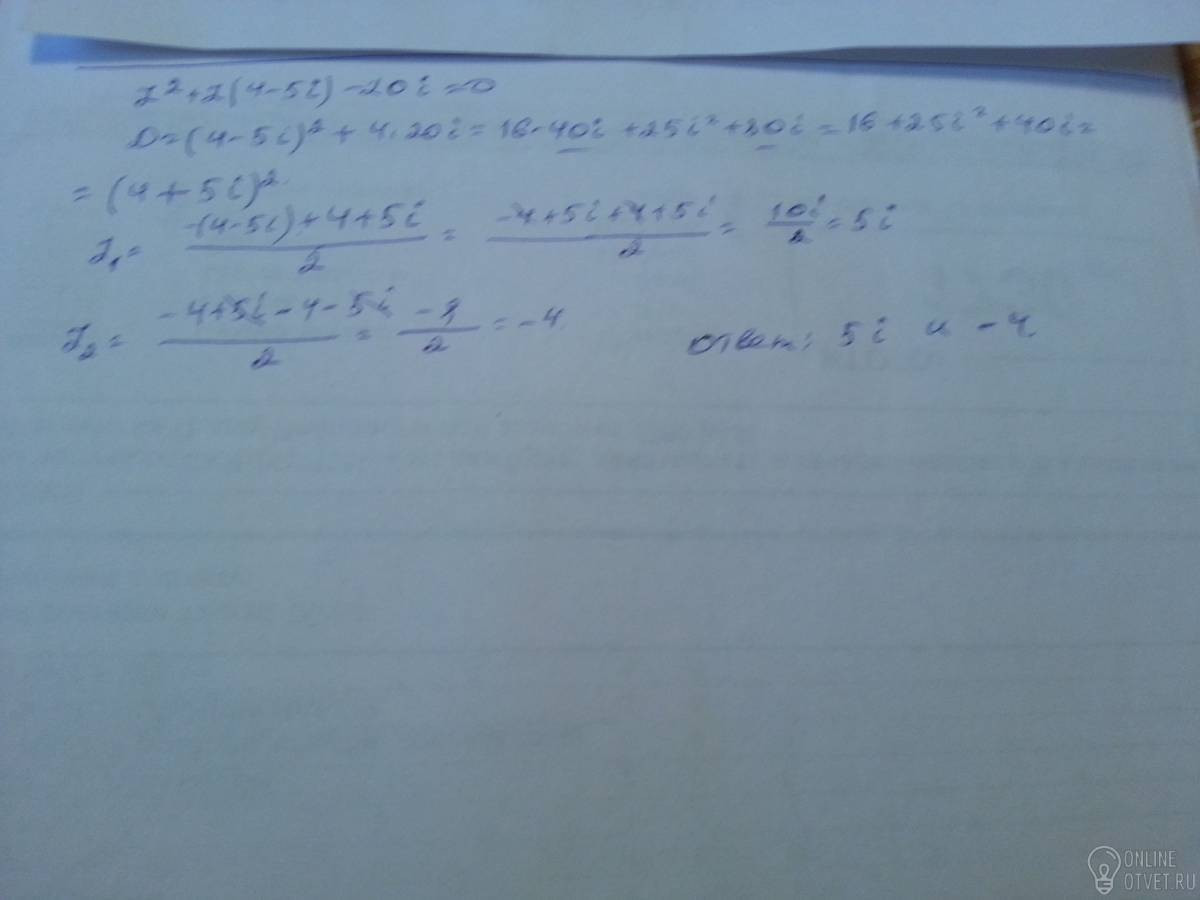 z²+z(4-5i)-20i=0
D=(4-5i)²+4·20i=16-40i+25i²+80i=16+25i²+40i=
=(4+5i)²
z₁= (-(4-5i)+4+5i)/2 = (-4+5i+4+5i)/2 = 10i/2 = 5i
z₂= (-4+5i-4-5i)/2 = -8/2 = -4
ответ: 5i и -4
ONLINE
OTVET.RU